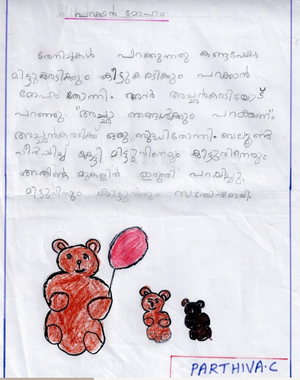 പറക്കാൻ മോഹം
തേനീച്ചകൾ പറക്കുന്നതു കണ്ടപ്പോൾ
മിട്ടുക്കരടിക്കും കിട്ടുകരടിക്കും പറക്കാൻ
മോഹം തോന്നി. അവർ അച്ഛൻകരടിയോട്
പറഞ്ഞു "അച്ഛാ ഞങ്ങൾക്കും പറക്കണം"
അച്ഛൻകരടിക്ക് ഒരു ബുദ്ധിതോന്നി. ബലൂൺ
വീർപ്പിച്ച് കെട്ടി മിട്ടുവിനെയും കിട്ടുവിനെയും
അതിന്റെ മുകളിൽ ഇരുത്തി പറപ്പിച്ചു.
മിട്ടുവിനും കിട്ടുവിനും സന്തോഷമായി.
PARTHIVA.C